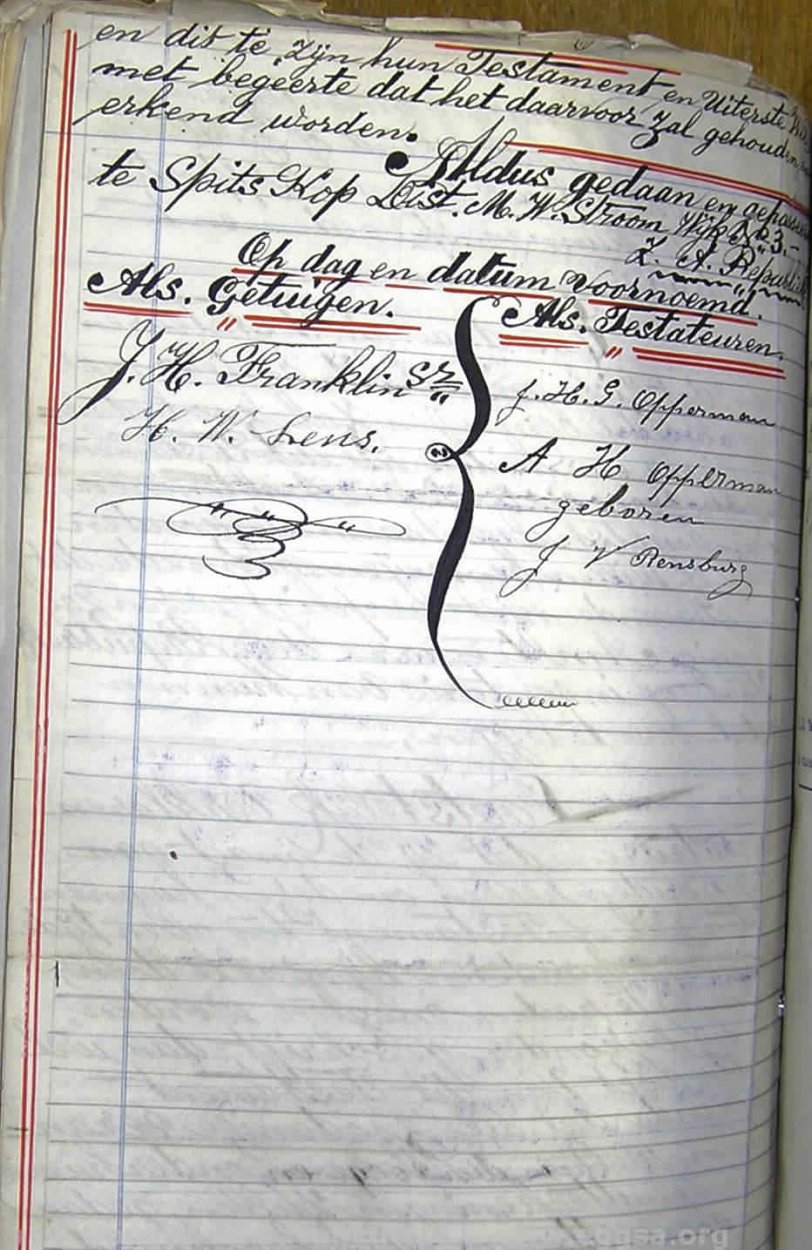 en dit te zijn hun Testament en Uiterste
met begeerte dat het daarvoor zal gehouden
erkend worden.
Aldus gedaan en gepas
te Spits Kop Dist. M. W. Stroom Wijk No 3.
Z. A. Republi
Op dag en datum voornoemd.
Als. Getuigen.
J. H. Franklin Sr
H. W. Lens.
Als. Testateuren.
J. H. G. Opperman
A H Opperman
geboren
J V Rensburg
ggsa.org